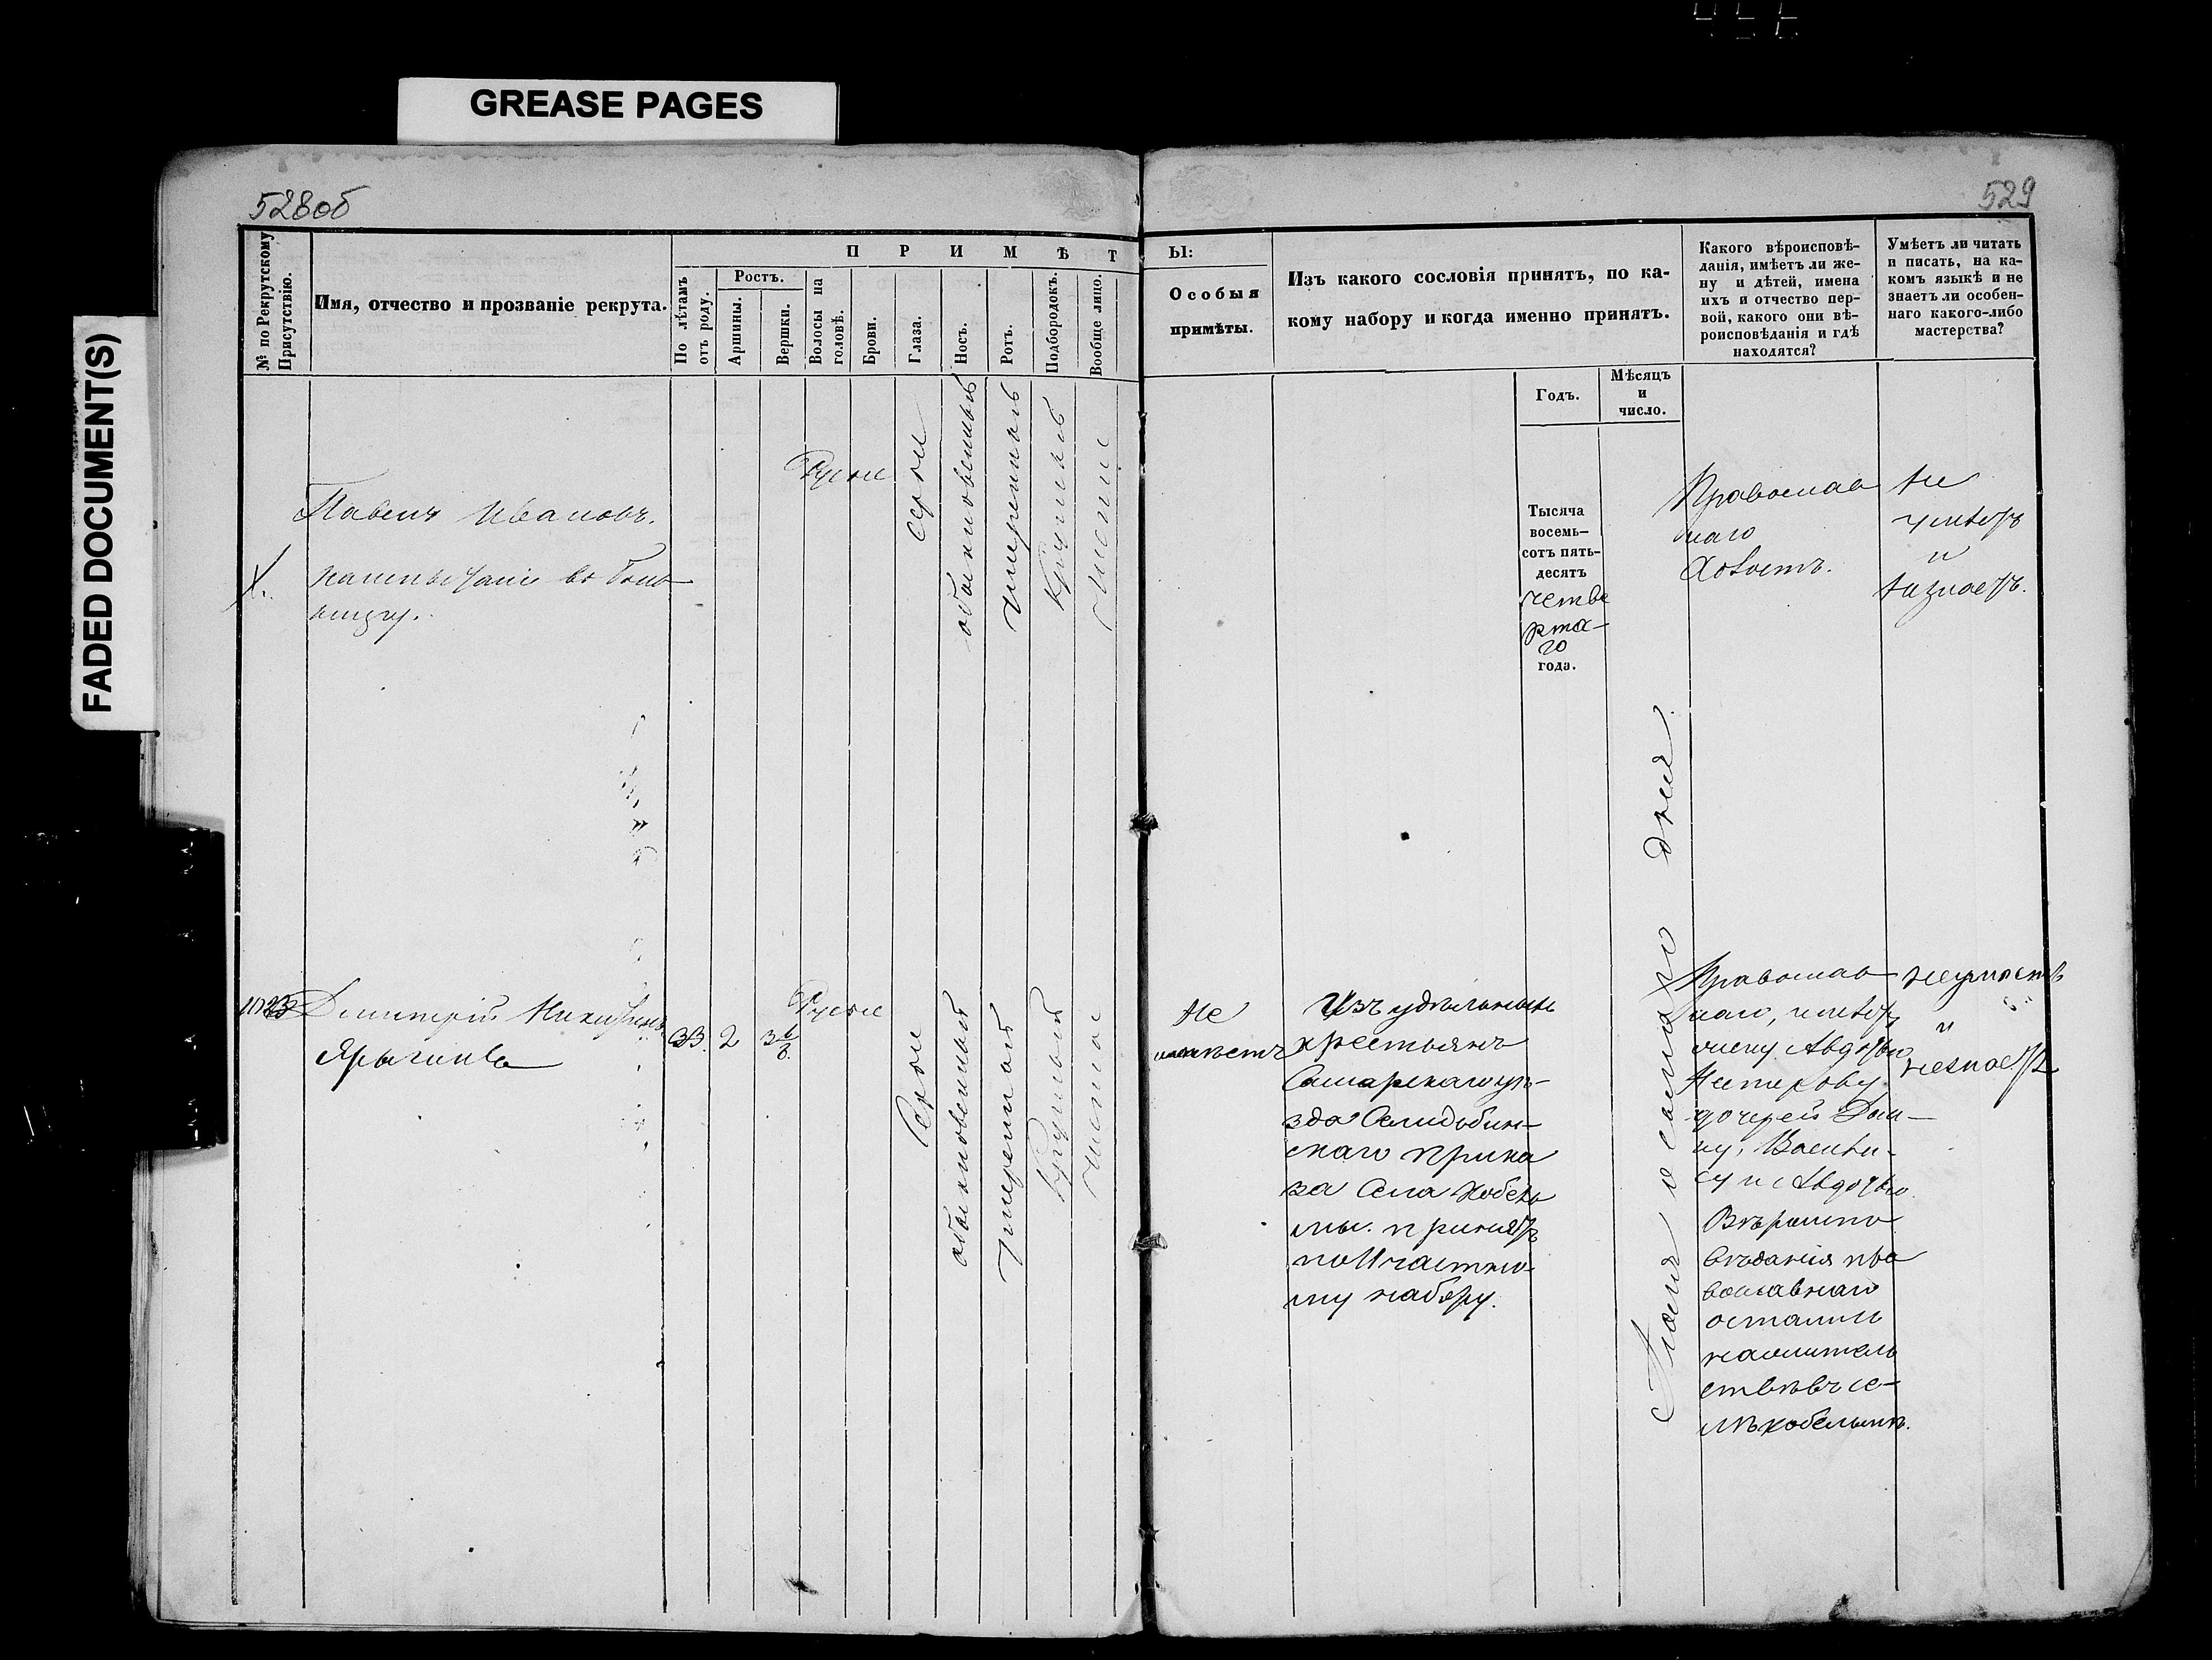 GREASE PAGES
FADED DOCUMENT(S)
528об
529
№ по Рекрутскому Присутствію.
Имя, отчество и прозваніе рекрута.
П Р И М Ѣ Т
По лѣтамъ отъ роду.
Ростъ.
Аршины.
Вершки.
Волосы на головѣ.
Брови.
Глаза.
Носъ.
Ротъ.
Подбородокъ.
Вообще лицо.
Ы:
Особыя
примѣты.
Изъ какого сословія принятъ, по ка-
кому набору и когда именно принятъ.
Годъ.
Мѣсяцъ
и
число.
Какого вѣроисповѣ-
данія, имѣетъ ли же-
ну и дѣтей, имена
ихъ и отчество пер-
вой, какого они вѣ-
роисповѣданія и гдѣ
находятся?
Умѣетъ ли читать
и писать, на ка-
комъ языкѣ и не
знаетъ ли особен-
наго какого-либо
мастерства?
Павелъ Ивановъ.
книгу.
Русые
серые
обыкновенный
умеренный
круглый
чистое
Тысяча
восемь-
сотъ пять-
десятъ
четве
рта-
го
года.
Православ
наго
Холостъ.
Не
умѣетъ
и
незнаетъ.
Дмитрій
Ярыгинъ
33 2 3 6/8
Русые
Серые
обыкновенный
умеренный
круглый
чистое
Не
имѣетъ
Изъ удѣльныхъ
крестьянъ
Самарскаго уѣ-
зда
скаго прика
за Села Кобель
мы. принятъ
по 11 частно-
му набору.
дня
Православ
наго, имѣетъ
жену Авдотью
дочерей Дом-
ну, Василь-
су и Авдотью
Вѣроиспо
вѣданія пра
вославнаго
остались
на житель
ствѣ въ се-
лѣ Кобельмѣ.
неумѣетъ
и
незнаетъ